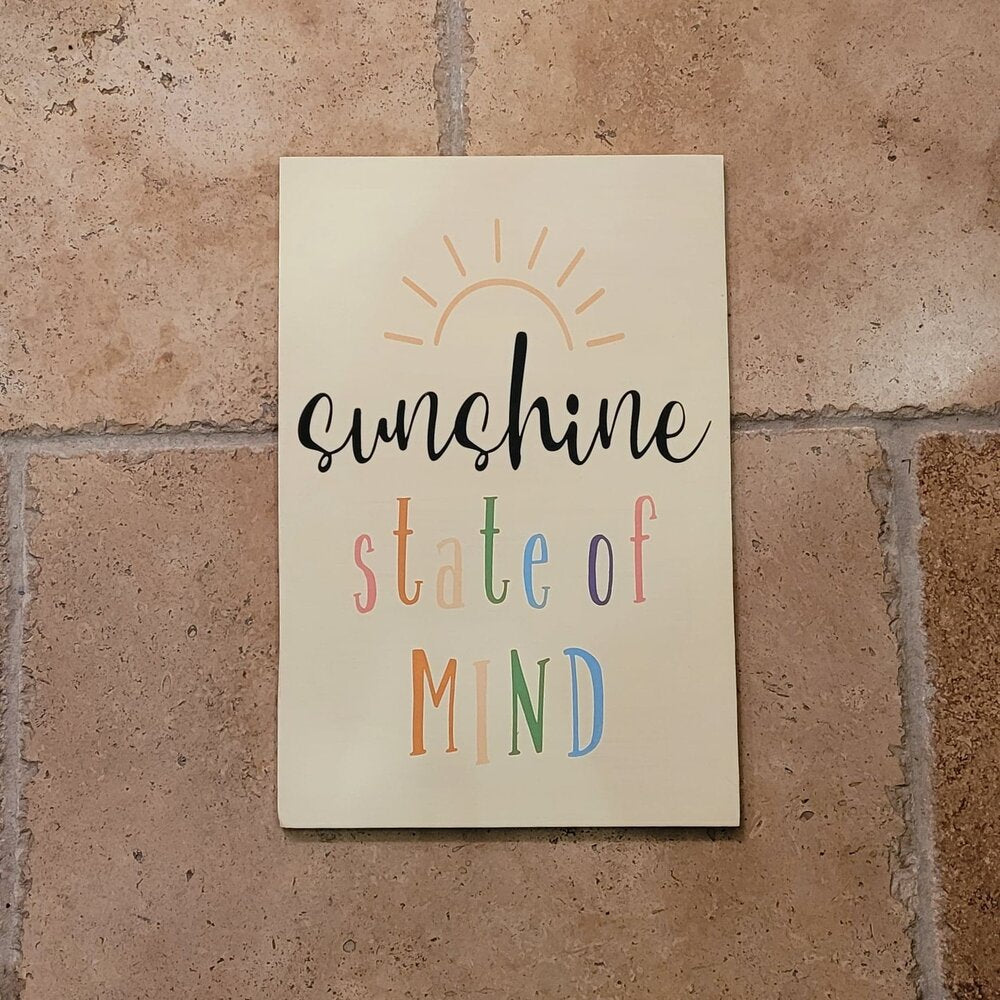 sunshine
state of
MIND